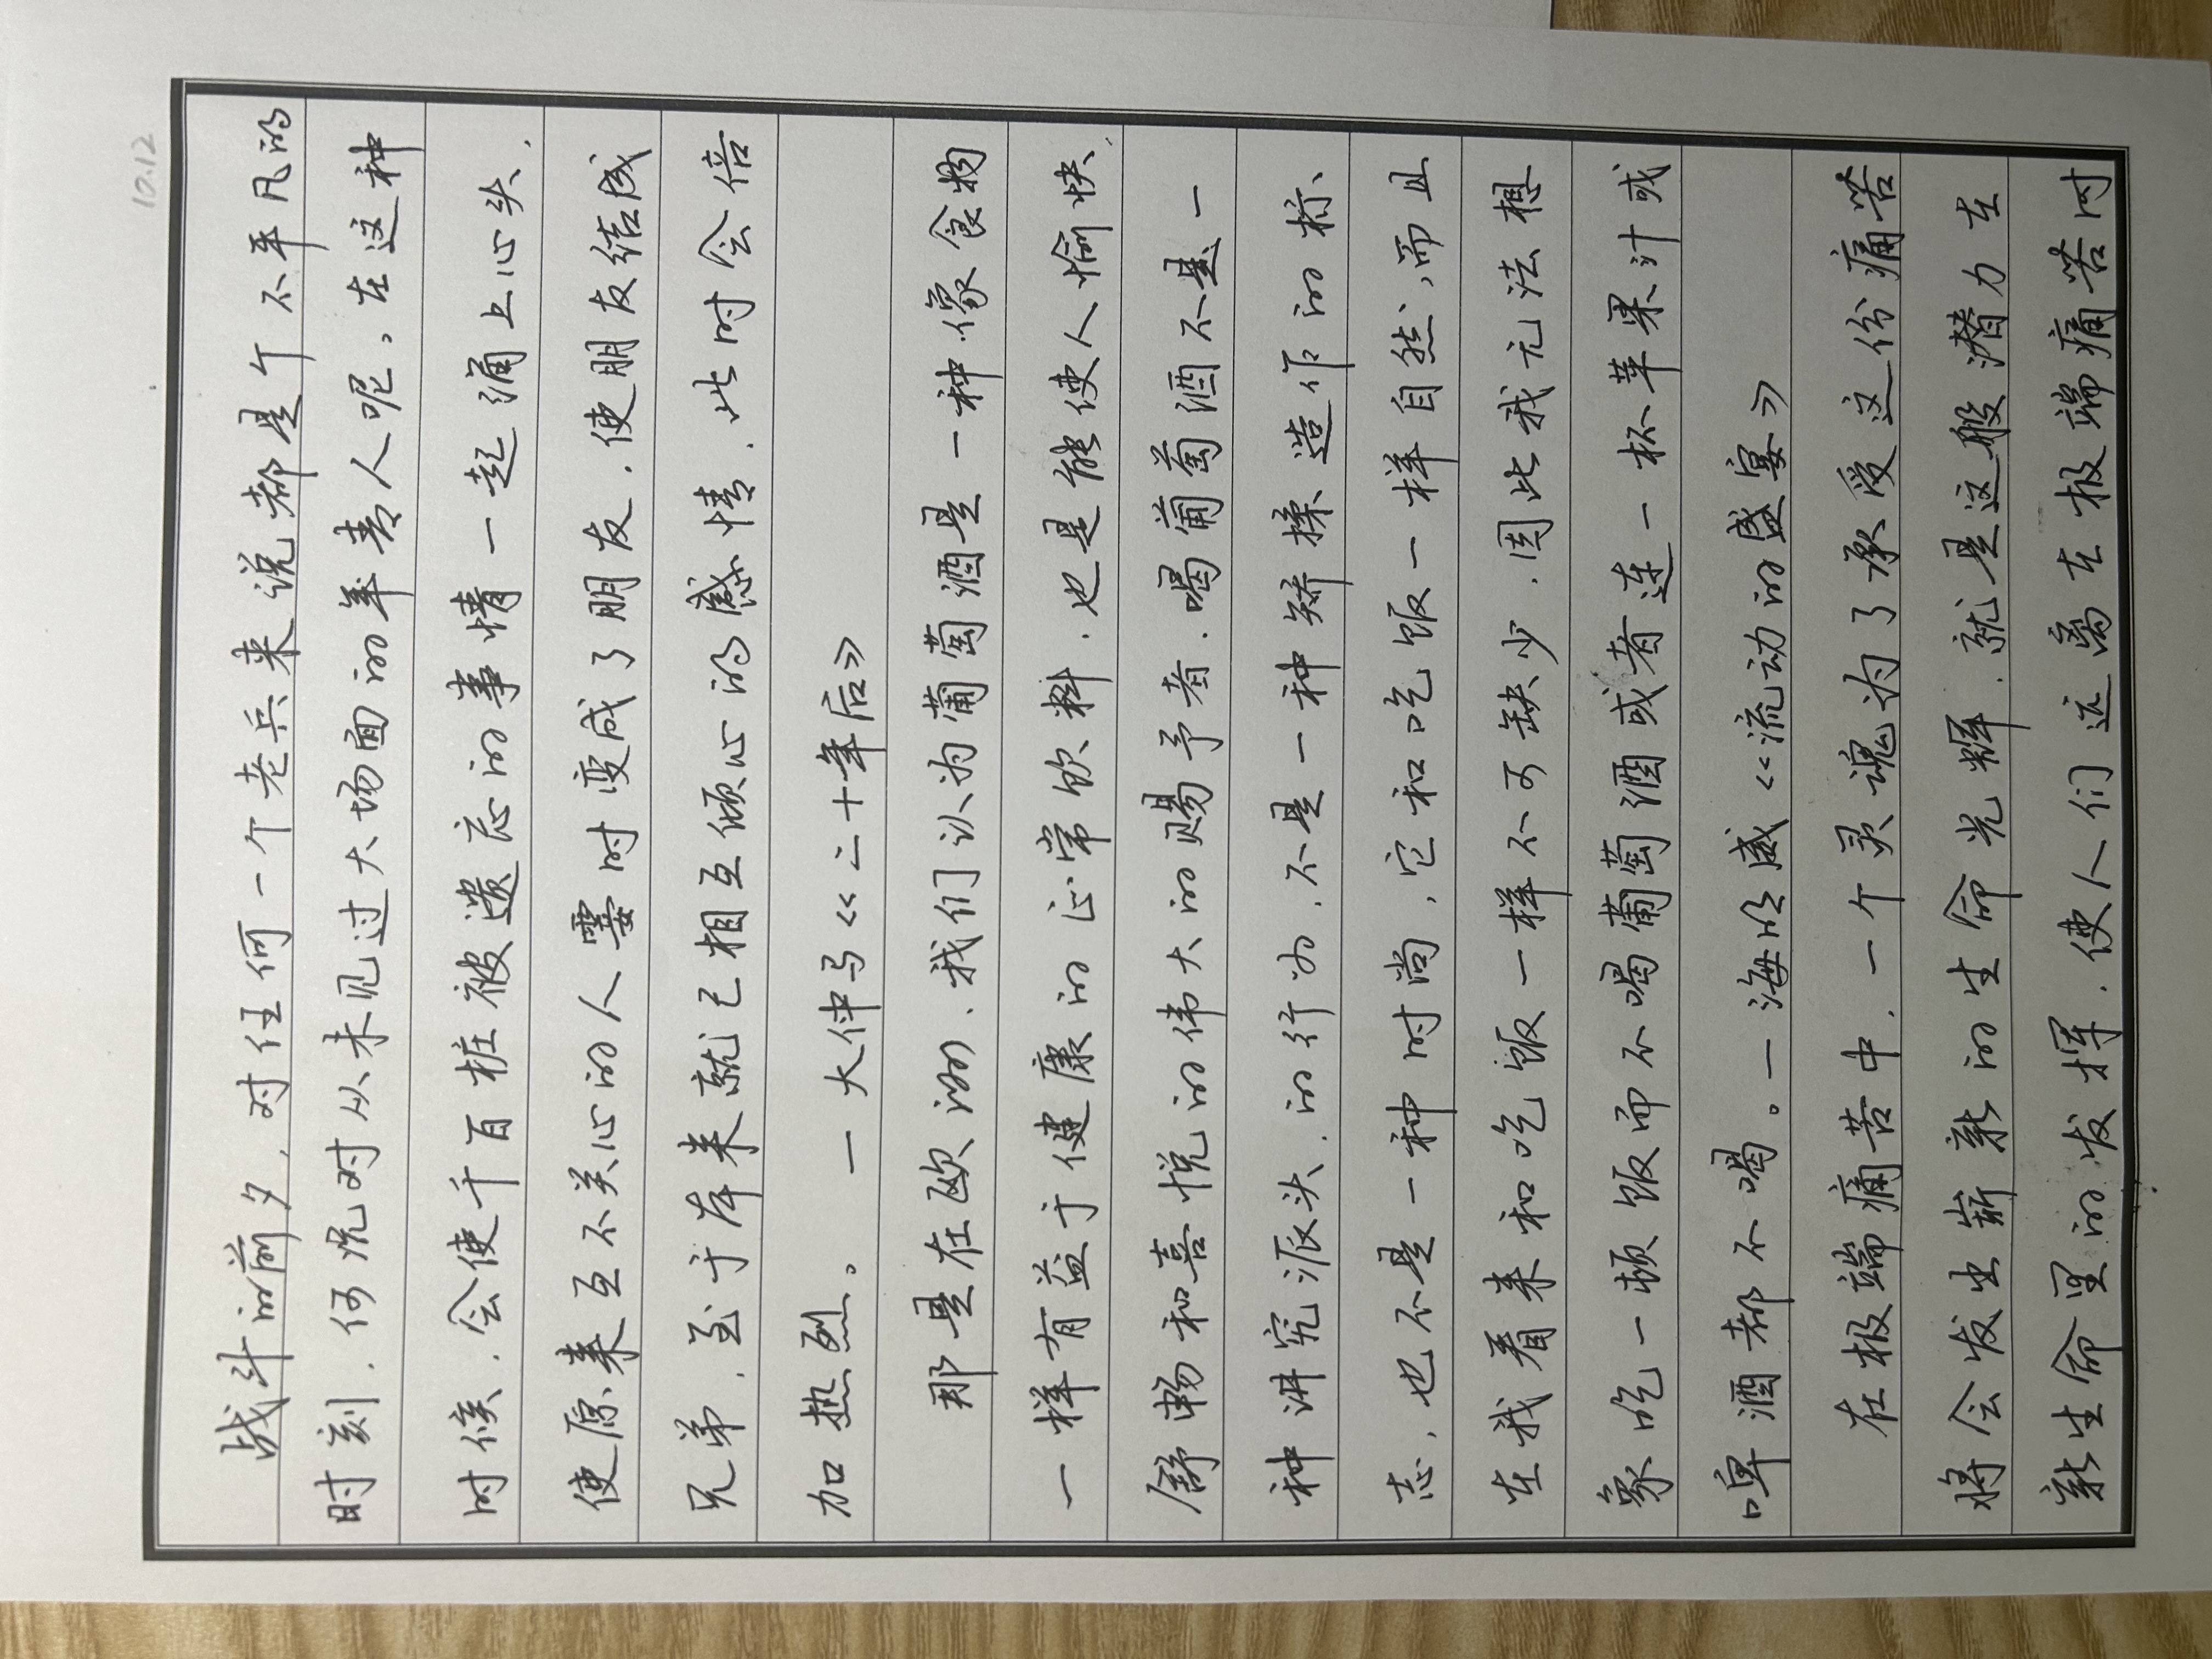 10.12
战斗的前夕，对任何一个老兵来说都是个不平凡的
时刻，何况对从未见过大场面的年青人呢。在这种
时候，会使千百桩被遗忘的事情一起涌上心头，
使原来互不关心的人霎时变成了朋友，使朋友结成
兄弟，至于本来就已相互倾心的感情，此时会倍
加热烈。 — 大仲马《二十年后》
那是在欧洲、我们认为葡萄酒是一种像食物
一样有益于健康的正常饮料，也是能使人愉快，
舒畅和喜悦的伟大的赐予者，喝葡萄酒不是一
种讲究派头，的行为，不是一种矫揉造作的标
志，也不是一种时尚，它和吃饭一样自然，而且
在我看来和吃饭一样不可缺少，因此我无法想
象吃一顿饭而不喝葡萄酒或者连一杯苹果汁或
啤酒都不喝。—海明威《流动的盛宴》
在极端痛苦中，一个灵魂为了承受这份痛苦
将会发出崭新的生命光辉，就是这般潜力在
新生命里的发挥，使人们远离在极端痛苦时